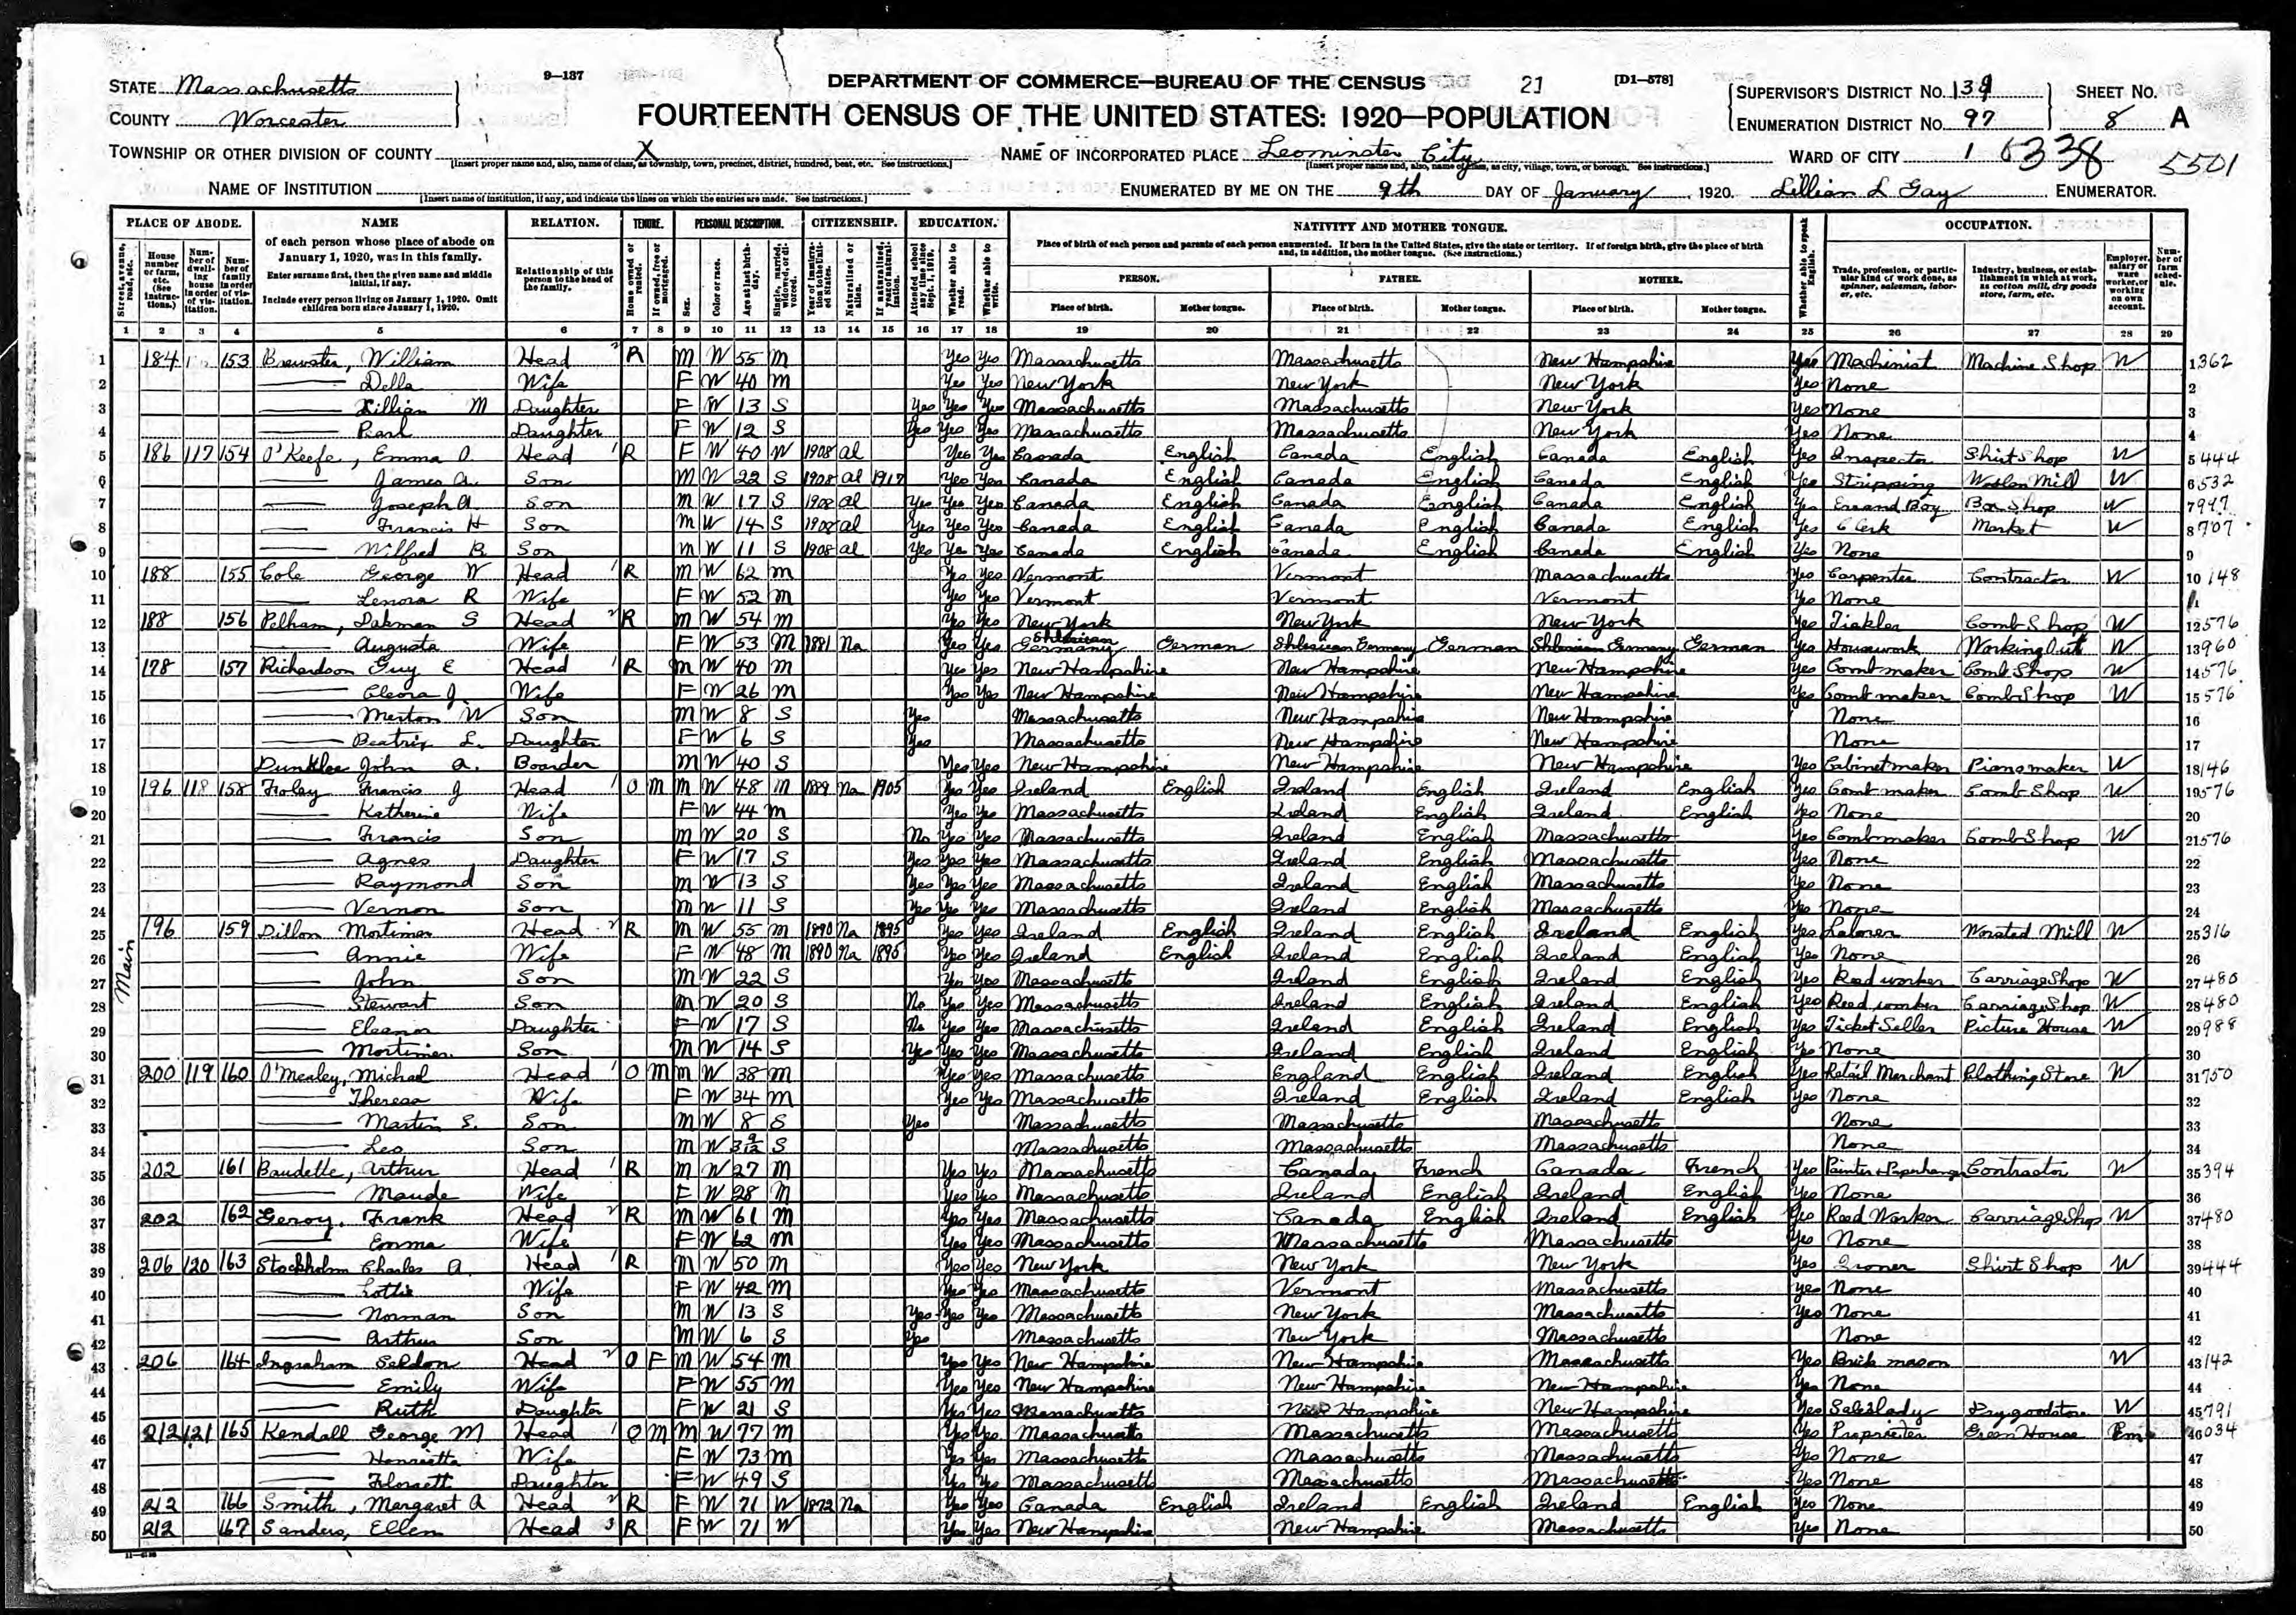 9—137
DEPARTMENT OF COMMERCE—BUREAU OF THE CENSUS
21
[D1—578]
STATE Massachusetts
COUNTY Worcester
FOURTEENTH CENSUS OF THE UNITED STATES: 1920—POPULATION
SUPERVISOR'S DISTRICT No. 139
ENUMERATION DISTRICT No. 97
SHEET No. 8 A
TOWNSHIP OR OTHER DIVISION OF COUNTY X
[Insert proper name and, also, name of class, as township, town, precinct, district, hundred, beat, etc. See instructions.]
NAME OF INCORPORATED PLACE Leominster City
[Insert proper name and, also, name of class, as city, village, town, or borough. See instructions.]
WARD OF CITY 1 6338 5501
NAME OF INSTITUTION
[Insert name of institution, if any, and indicate the lines on which the entries are made. See instructions.]
ENUMERATED BY ME ON THE 9th DAY OF January, 1920. Lillian L Gay ENUMERATOR.
PLACE OF ABODE. NAME RELATION. TENURE. PERSONAL DESCRIPTION. CITIZENSHIP. EDUCATION. NATIVITY AND MOTHER TONGUE. OCCUPATION.
of each person whose place of abode on January 1, 1920, was in this family.
Enter surname first, then the given name and middle initial, if any.
Include every person living on January 1, 1920. Omit children born since January 1, 1920.
Relationship of this person to the head of the family.
Place of birth of each person and parents of each person enumerated. If born in the United States, give the state or territory. If of foreign birth, give the place of birth and, in addition, the mother tongue. (See instructions.)
PERSON. FATHER. MOTHER.
Place of birth. Mother tongue. Place of birth. Mother tongue. Place of birth. Mother tongue.
Trade, profession, or particular kind of work done, as spinner, salesman, laborer, etc.
Industry, business, or establishment in which at work, as cotton mill, dry goods store, farm, etc.
Employer, salary or wage worker, or working on own account.
Number of farm schedule.
1 2 3 4 5 6 7 8 9 10 11 12 13 14 15 16 17 18 19 20 21 22 23 24 25 26 27 28 29
Main
1 184 153 Brewster, William Head R M W 55 M Yes Yes Massachusetts Massachusetts New Hampshire Yes Machinist Machine Shop W 1 362
2 Della Wife F W 40 M Yes Yes New York New York New York Yes None 2
3 Lillian M Daughter F W 13 S Yes Yes Yes Massachusetts Massachusetts New York Yes None 3
4 Pearl Daughter F W 12 S Yes Yes Yes Massachusetts Massachusetts New York Yes None 4
5 186 117 154 O'Keefe, Emma A. Head R F W 40 W 1908 al Yes Yes Canada English Canada English Canada English Yes Inspector Shirt Shop W 5 444
6 James A. Son M W 22 S 1908 al 1917 Yes Yes Canada English Canada English Canada English Yes Stripping Woolen Mill W 6 532
7 Joseph A Son M W 17 S 1908 al Yes Yes Yes Canada English Canada English Canada English Yes Errand Boy Box Shop W 7 997
8 Francis H Son M W 14 S 1908 al Yes Yes Yes Canada English Canada English Canada English Yes Clerk Market W 8 707
9 Wilfred B. Son M W 11 S 1908 al Yes Yes Yes Canada English Canada English Canada English Yes None 9
10 188 155 Cole George W Head R M W 62 M Yes Yes Vermont Vermont Massachusetts Yes Carpenter Contractor W 10 148
11 Lenora R Wife F W 52 M Yes Yes Vermont Vermont Vermont Yes None 11
12 188 156 Pelham, Lakeman S Head R M W 54 M Yes Yes New York New York New York Yes Comb Shop W 12 576
13 Augusta Wife F W 53 M 1881 Na Yes Yes Germany German Germany German Germany German Yes Housework Working Out W 13 960
14 178 157 Richardson Guy E Head R M W 40 M Yes Yes New Hampshire New Hampshire New Hampshire Yes Combmaker Comb Shop W 14 576
15 Cleora J Wife F W 26 M Yes Yes New Hampshire New Hampshire New Hampshire Yes Comb maker Comb Shop W 15 576
16 Merton W Son M W 8 S Yes Massachusetts New Hampshire New Hampshire None 16
17 Beatrix L. Daughter F W 6 S Yes Massachusetts New Hampshire New Hampshire None 17
18 Dunklee John A. Boarder M W 40 S Yes Yes New Hampshire New Hampshire New Hampshire Yes Cabinetmaker Pianomaker W 18 146
19 196 118 158 Foley Francis J Head O M M W 48 M 1889 Na 1905 Yes Yes Ireland English Ireland English Ireland English Yes Comb maker Comb Shop W 19 576
20 Katherine Wife F W 44 M Yes Yes Massachusetts Ireland English Ireland English Yes None 20
21 Francis Son M W 20 S No Yes Yes Massachusetts Ireland English Massachusetts Yes Combmaker Comb Shop W 21 576
22 Agnes Daughter F W 17 S Yes Yes Yes Massachusetts Ireland English Massachusetts Yes None 22
23 Raymond Son M W 13 S Yes Yes Yes Massachusetts Ireland English Massachusetts Yes None 23
24 Vernon Son M W 11 S Yes Yes Yes Massachusetts Ireland English Massachusetts Yes None 24
25 196 159 Dillon Mortimer Head R M W 55 M 1890 Na 1895 Yes Yes Ireland English Ireland English Ireland English Yes Laborer Worsted Mill W 25 316
26 Annie Wife F W 48 M 1890 Na 1895 Yes Yes Ireland English Ireland English Ireland English Yes None 26
27 John Son M W 22 S Yes Yes Massachusetts Ireland English Ireland English Yes Reed worker Carriage Shop W 27 480
28 Stewart Son M W 20 S No Yes Yes Massachusetts Ireland English Ireland English Yes Reed worker Carriage Shop W 28 480
29 Eleanor Daughter F W 17 S No Yes Yes Massachusetts Ireland English Ireland English Yes Ticket Seller Picture House W 29 988
30 Mortimer Son M W 14 S Yes Yes Yes Massachusetts Ireland English Ireland English Yes None 30
31 200 119 160 O'Mealey, Michael Head O M M W 38 M Yes Yes Massachusetts England English Ireland English Yes Retail Merchant Clothing Store W 31 750
32 Theresa Wife F W 34 M Yes Yes Massachusetts Ireland English Ireland English Yes None 32
33 Martin S. Son M W 8 S Yes Massachusetts Massachusetts Massachusetts None 33
34 Leo Son M W 3 9/12 S Massachusetts Massachusetts Massachusetts None 34
35 202 161 Baudette, Arthur Head R M W 27 M Yes Yes Massachusetts Canada French Canada French Yes Painter + Paperhanger Contractor W 35 394
36 Maude Wife F W 28 M Yes Yes Massachusetts Ireland English Ireland English Yes None 36
37 202 162 Geroy, Frank Head R M W 61 M Yes Yes Massachusetts Canada English Ireland English Yes Reed Worker Carriage Shop W 37 480
38 Emma Wife F W 62 M Yes Yes Massachusetts Massachusetts Massachusetts Yes None 38
39 206 120 163 Stockholm Charles A. Head R M W 50 M Yes Yes New York New York New York Yes Ironer Shirt Shop W 39 444
40 Lottie Wife F W 42 M Yes Yes Massachusetts Vermont Massachusetts Yes None 40
41 Norman Son M W 13 S Yes Yes Yes Massachusetts New York Massachusetts Yes None 41
42 Arthur Son M W 6 S Yes Massachusetts New York Massachusetts None 42
43 206 164 Ingraham Seldon Head O F M W 54 M Yes Yes New Hampshire New Hampshire Massachusetts Yes Brick mason W 43 142
44 Emily Wife F W 55 M Yes Yes New Hampshire New Hampshire New Hampshire Yes None 44
45 Ruth Daughter F W 21 S Yes Yes Massachusetts New Hampshire New Hampshire Yes Saleslady Drygoodstore W 45 791
46 212 121 165 Kendall George M Head O M M W 77 M Yes Yes Massachusetts Massachusetts Massachusetts Yes Proprietor Green House Em 46 034
47 Henrietta Wife F W 73 M Yes Yes Massachusetts Massachusetts Massachusetts Yes None 47
48 Daughter F W 49 S Yes Yes Massachusetts Massachusetts Massachusetts Yes None 48
49 212 166 Smith, Margaret A Head R F W 71 W 1872 Na Yes Yes Canada English Ireland English Ireland English Yes None 49
50 212 167 Sanders, Ellen Head R F W 71 W Yes Yes New Hampshire New Hampshire Massachusetts Yes None 50